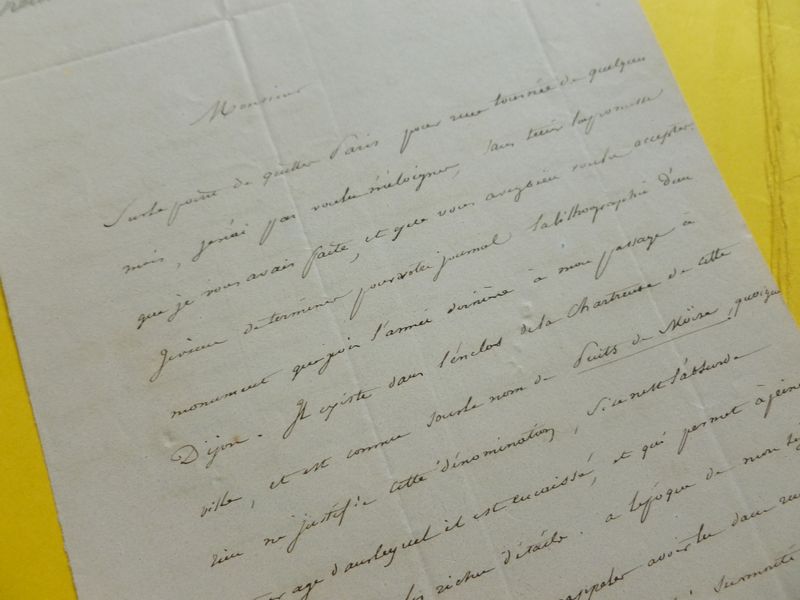 Monsieur
Sur le point de quitter Paris pour une tournée de quelques
mois, je n'ai pas voulu m'éloigner, sans tenir la promesse
que je vous avais faite, et que vous avez bien voulu accepter.
Je viens de terminer pour votre journal la lithographie d'un
monument que j'ai vu l'année dernière à mon passage à
Dijon. Il existe dans l'enclos de la Chartreuse de cette
ville, et est connu sous le nom de Puits de Moïse, quoique
rien ne justifie cette dénomination, si ce n'est l'absurde
age dans lequel il est encaissé, et qui permet à peine
riches détails. a l'époque de mon
rappeler avoir lu dans
surmonté